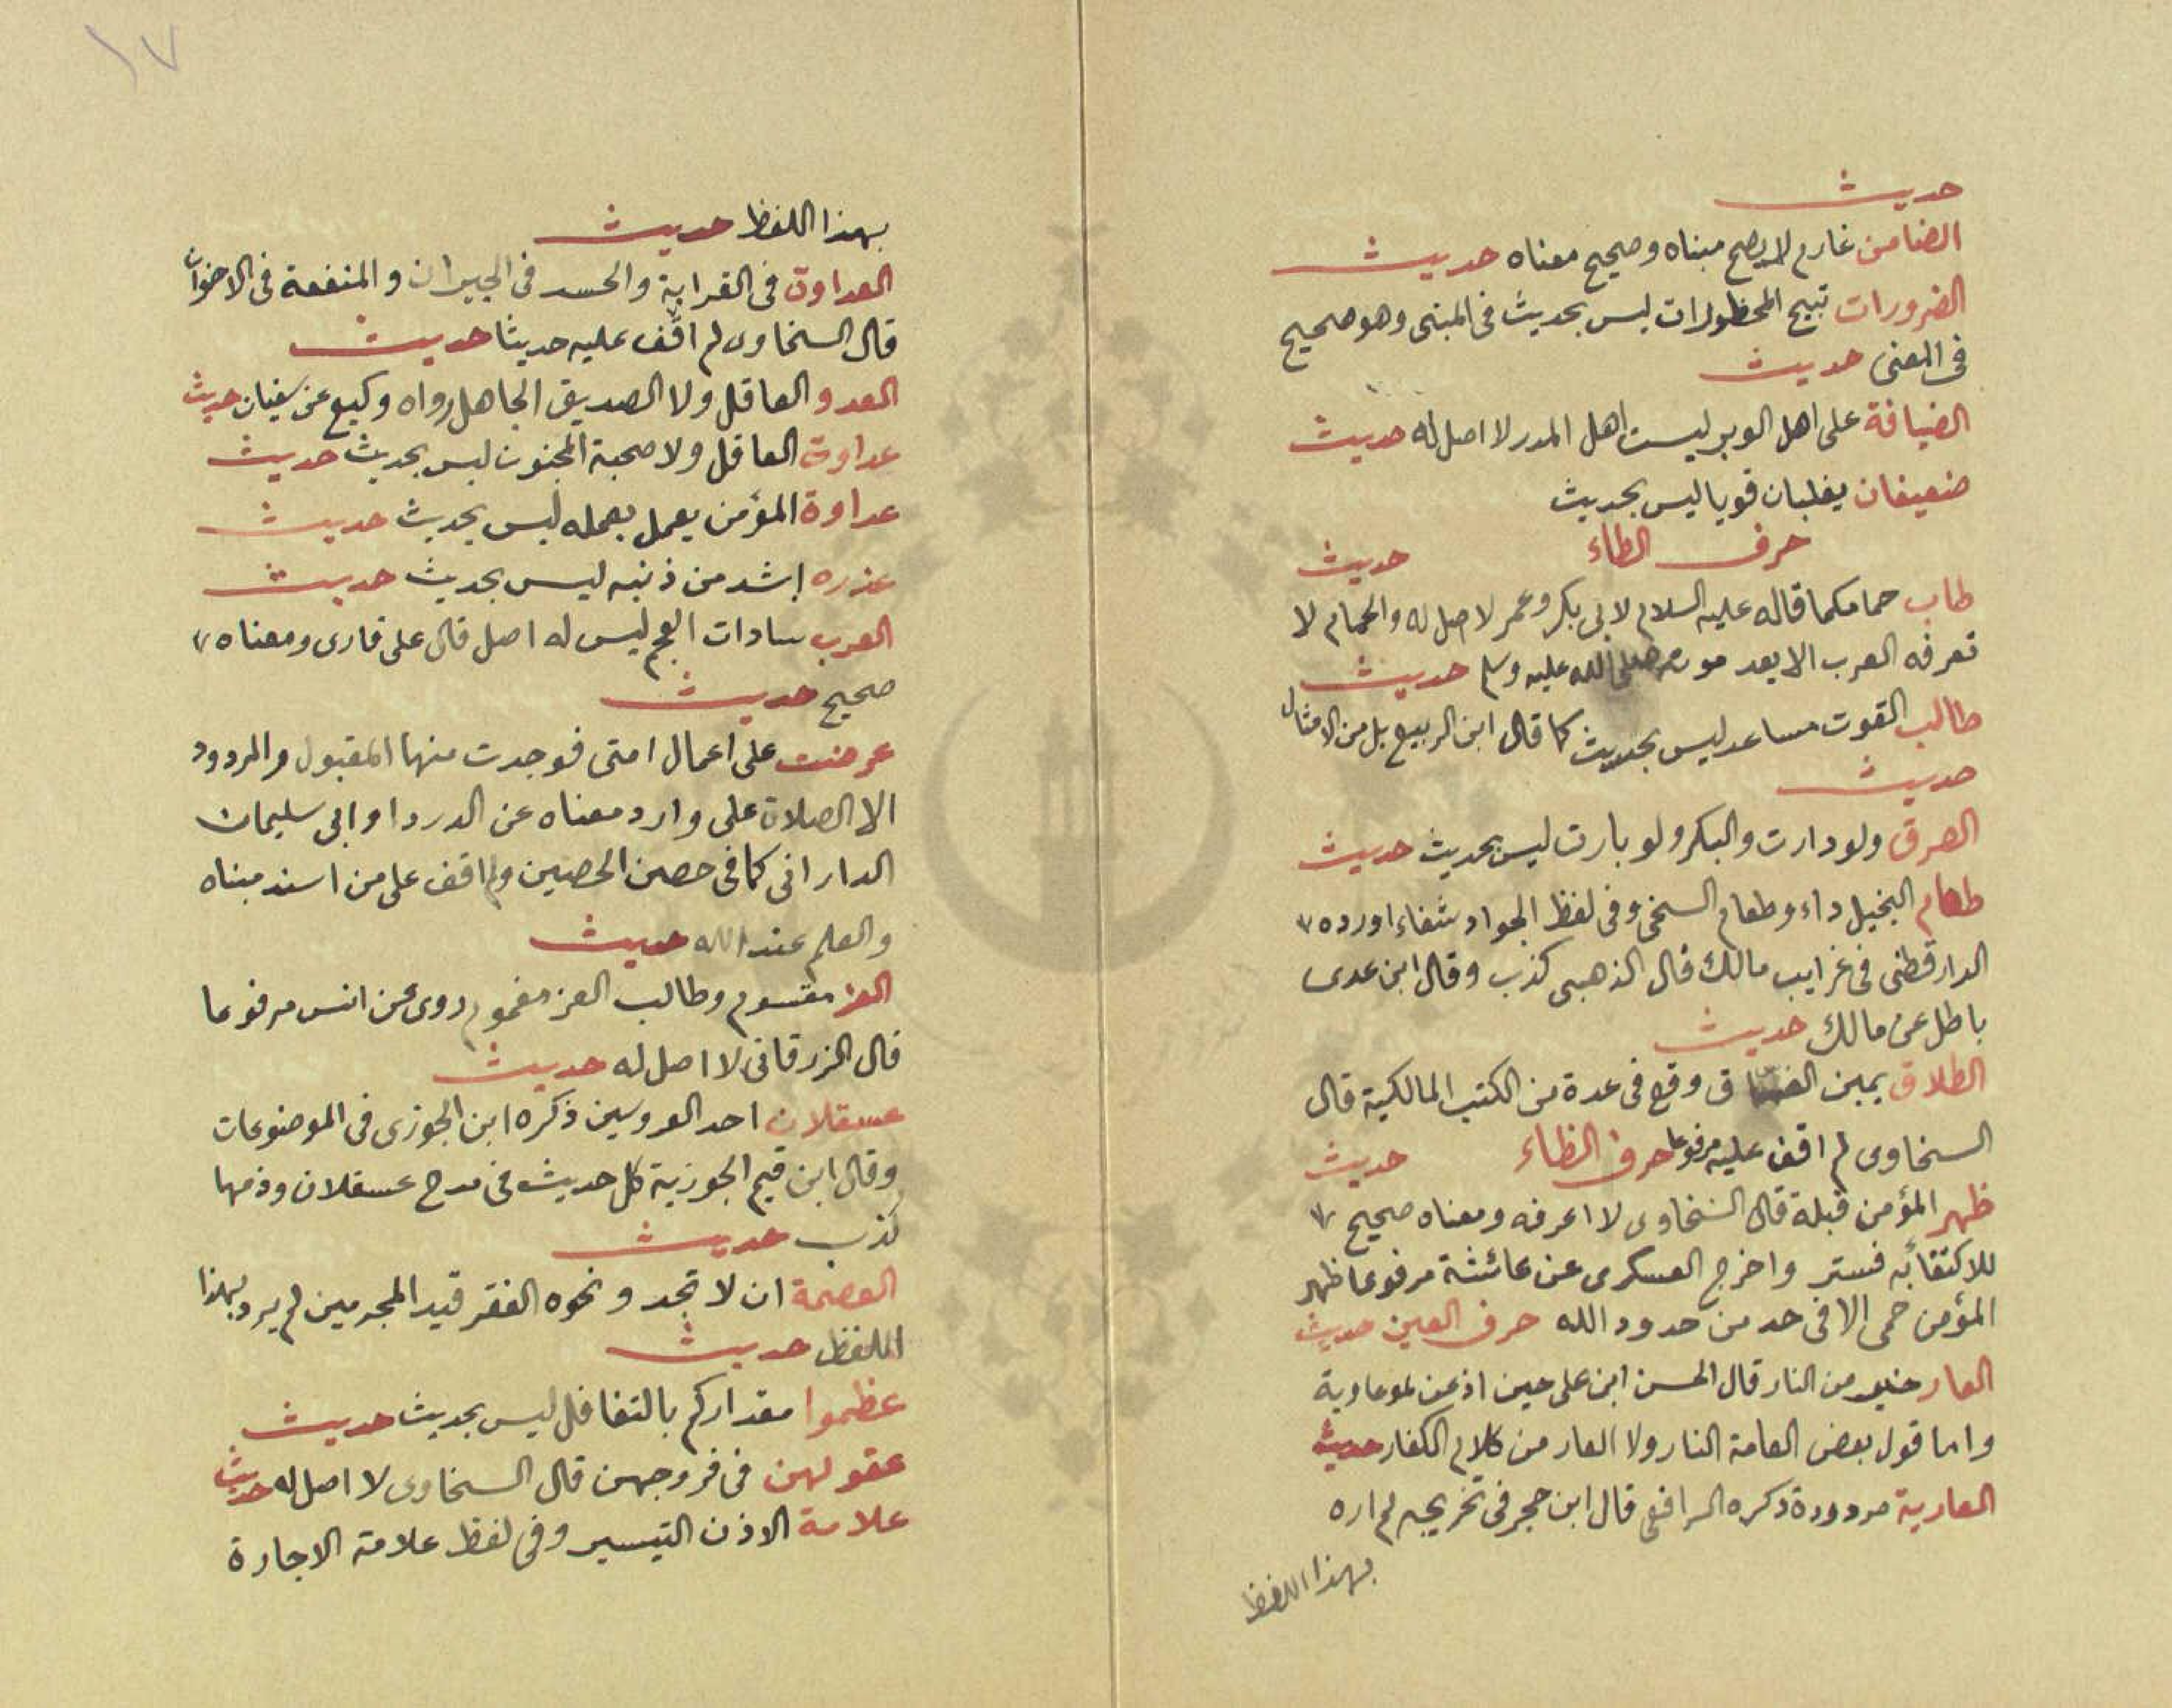 حديث
الضامن غارم لا يصح مبناه وصحيح معناه حديث
الضرورات تبيح المحظورات ليس بحديث فى المبنى وهو صحيح
فى المعنى حديث
الضيافة على اهل الوبر ليست اهل المدر لا اصل له حديث
ضعيفان يغلبان قويا ليس بحديث
حرف الطاء حديث
طاب حمامكما قاله عليه السلام لابى بكر وعمر لا اصل له والحمام لا
تعرفه العرب الا بعد موته صلى الله عليه وسلم حديث
طالب القوت مساعد ليس بحديث كما قال ابن الربيع بل من الامثال
حديث
الطرق ولو دارت والبكر ولو بارت ليس بحديث حديث
طعام البخيل داء وطعام السخى وفى لفظ الجواد شفاء اورده
الدارقطنى فى غرايب مالك قال الذهبى كذب وقال ابن عدى
باطل عن مالك حديث
الطلاق يمين الفساق وقع فى عدة من الكتب المالكية قال
السخاوى لم اقف عليه مرفوعا حرف الظاء حديث
ظهر المؤمن قبلة قال السخاوى لا اعرفه ومعناه صحيح
للاكتفا به فستر واخرج العسكرى عن عائشة مرفوعا ظهر
المؤمن حمى الا فى حد من حدود الله حرف العين حديث
العار خير من النار قال الحسن ابن على حين اذعن لمعاوية
واما قول بعض العامة النار ولا العار من كلام الكفار حديث
العارية مردودة ذكره الرافعى قال ابن حجر فى تخريجه لم اره
بهذا اللفظ
١٧
بهذا اللفظ حديث
العداوة فى القرابة والحسد فى الجيران والمنفعة فى الاخوان
قال السخاوى لم اقف عليه حديثا حديث
العدو العاقل ولا الصديق الجاهل رواه وكيع عن سفيان حديث
عداوة العاقل ولا صحبة المجنون ليس بحديث حديث
عداوة المؤمن يعمل بعمله ليس بحديث حديث
عذره اشد من ذنبه ليس بحديث حديث
العرب سادات العجم ليس له اصل قال على قارى ومعناه
صحيح حديث
عرضت على اعمال امتى فوجدت منها المقبول والمردود
الا الصلاة على وارد معناه عن الدردا وابى سليمان
الدارانى كما فى حصن الحصين ولم اقف على من اسند مبناه
والعلم عند الله حديث
العز مقسوم وطالب العز مغموم روى عن انس مرفوعا
قال الزرقانى لا اصل له حديث
عسقلان احد العروسين ذكره ابن الجوزى فى الموضوعات
وقال ابن قيم الجوزية كل حديث فى مدح عسقلان وذمها
كذب حديث
العصمة ان لا تجد ونحوه الفقر قيد المجرمين لم يرد بهذا
اللفظ حديث
عظموا مقداركم بالتغافل ليس بحديث حديث
عقولهن فى فروجهن قال السخاوى لا اصل له حديث
علامة الاذن التيسير وفى لفظ علامة الاجازة